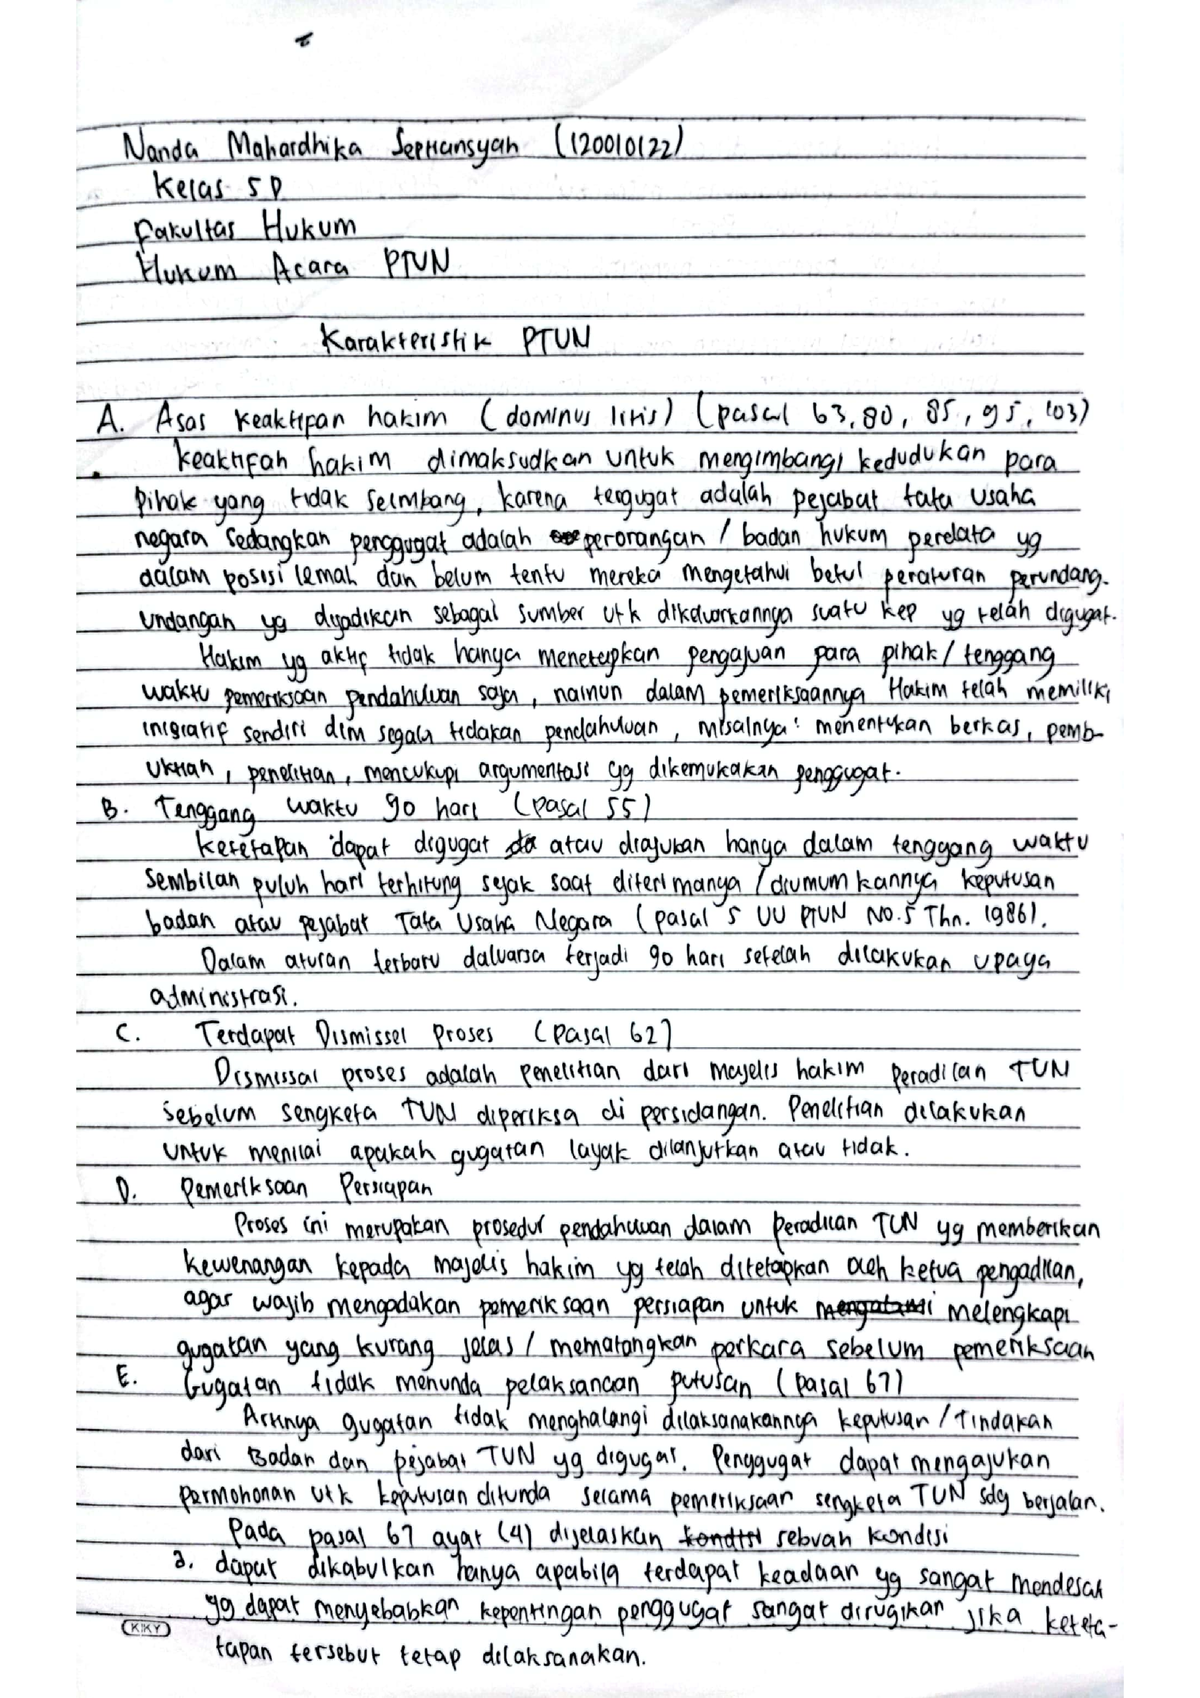 Nanda Mahardhika Septiansyah (120010122)
Kelas 5D
Fakultas Hukum
Hukum Acara PTUN
Karakteristik PTUN
A. Asas keaktifan hakim (dominus litis) (pasal 63, 80, 85, 95, 103)
keaktifan hakim dimaksudkan untuk mengimbangi kedudukan para
pihak yang tidak seimbang, karena tergugat adalah pejabat tata usaha
negara sedangkan penggugat adalah perorangan / badan hukum perdata yg
dalam posisi lemah dan belum tentu mereka mengetahui betul peraturan perundang-
undangan yg dijadikan sebagai sumber utk dikeluarkannya suatu kep yg telah digugat.
Hakim yg aktif tidak hanya menetapkan pengajuan para pihak / tenggang
waktu pemeriksaan pendahuluan saja, namun dalam pemeriksaannya Hakim telah memiliki
inisiatif sendiri dlm segala tidakan pendahuluan, misalnya: menentukan berkas, pemb-
uktian, penelitian, mencukupi argumentasi yg dikemukakan penggugat.
B. Tenggang waktu 90 hari (pasal 55)
Ketetapan dapat digugat atau diajukan hanya dalam tenggang waktu
sembilan puluh hari terhitung sejak saat diterimanya / diumumkannya keputusan
badan atau pejabat Tata Usaha Negara (pasal 5 UU PTUN NO.5 Thn. 1986).
Dalam aturan terbaru daluarsa terjadi 90 hari setelah dilakukan upaya
administrasi.
C. Terdapat Dismissel Proses (pasal 62)
Dismissal proses adalah penelitian dari majelis hakim peradilan TUN
sebelum sengketa TUN diperiksa di persidangan. Penelitian dilakukan
untuk menilai apakah gugatan layak dilanjutkan atau tidak.
D. Pemeriksaan Persiapan
Proses ini merupakan prosedur pendahuluan dalam peradilan TUN yg memberikan
kewenangan kepada majelis hakim yg telah ditetapkan oleh ketua pengadilan,
agar wajib mengadakan pemeriksaan persiapan untuk melengkapi
gugatan yang kurang jelas / mematangkan perkara sebelum pemeriksaan
E. Gugatan tidak menunda pelaksanaan putusan (pasal 67)
Artinya gugatan tidak menghalangi dilaksanakannya keputusan / Tindakan
dari Badan dan pejabat TUN yg digugat. Penggugat dapat mengajukan
permohonan utk keputusan ditunda selama pemeriksaan sengketa TUN sdg berjalan.
Pada pasal 67 ayat (4) dijelaskan kondisi sebuah kondisi
a. dapat dikabulkan hanya apabila terdapat keadaan yg sangat mendesak
yg dapat menyebabkan kepentingan penggugat sangat dirugikan jika keteta-
tapan tersebut tetap dilaksanakan.
KIKY